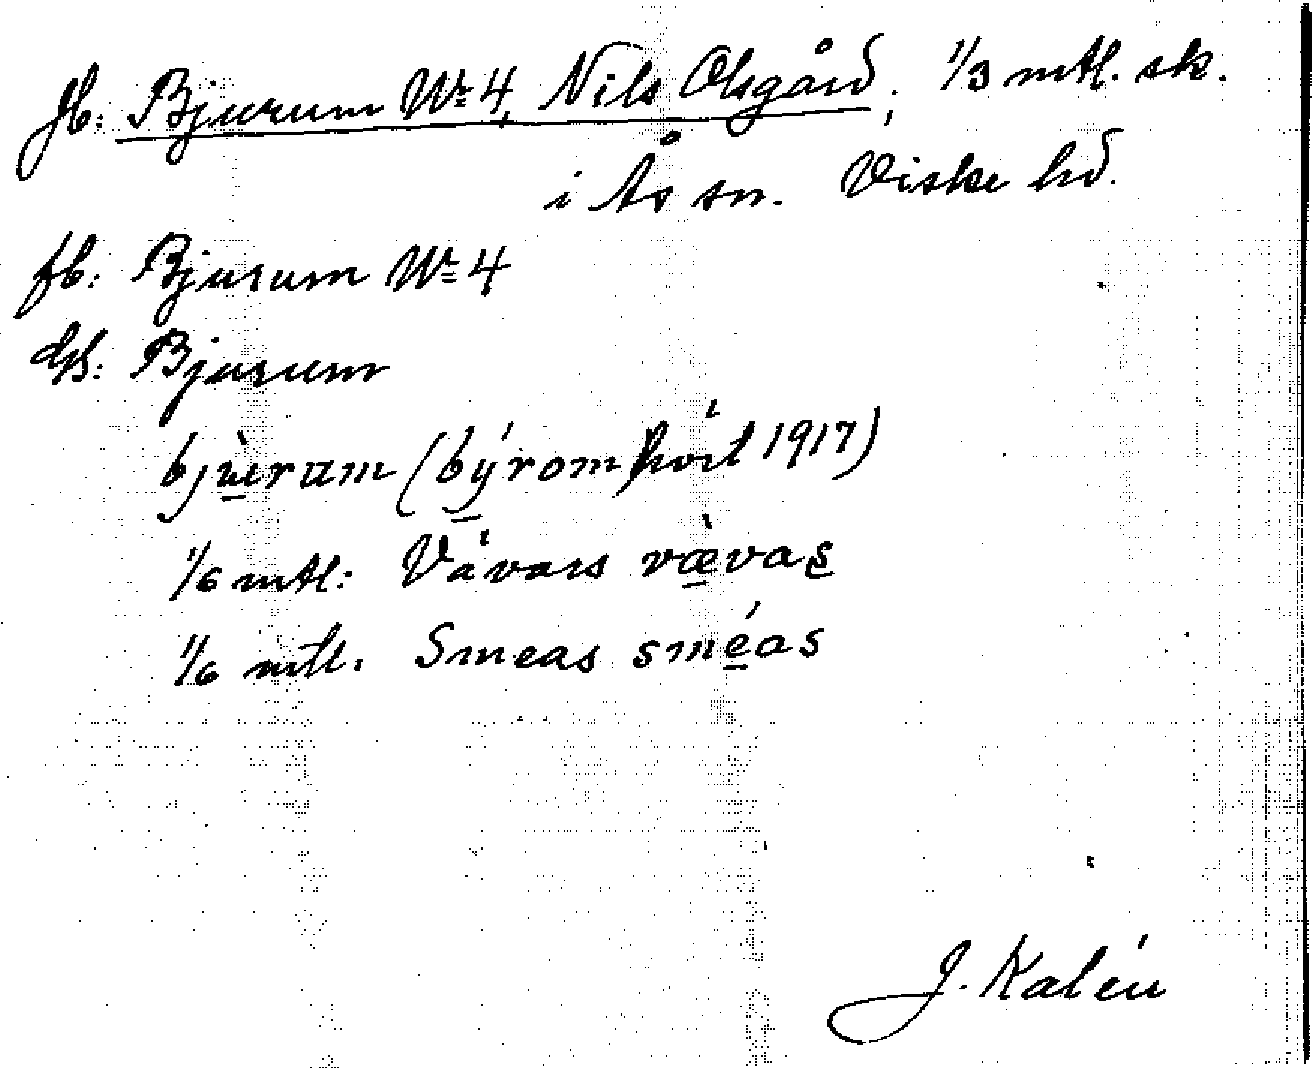 Jb: Bjurum Nr 4, Nils Olsgård, 1/3 mtl. sk.
i Ås sn. Viske hd.
fb: Bjurum Nr 4
Gs: Bjurum
bjùrum (býrom kvil 1917)
1/6 mtl: Vävars vævas
1/6 mtl. Smeas sméas
J. Kalén